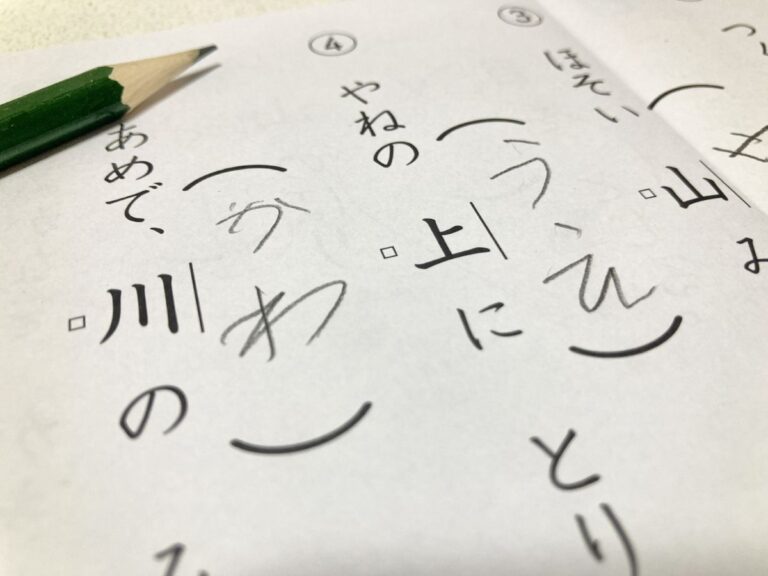 ③
ほそい山
④
（うえ）
やねの上に とり
（かわ）
あめで、川の